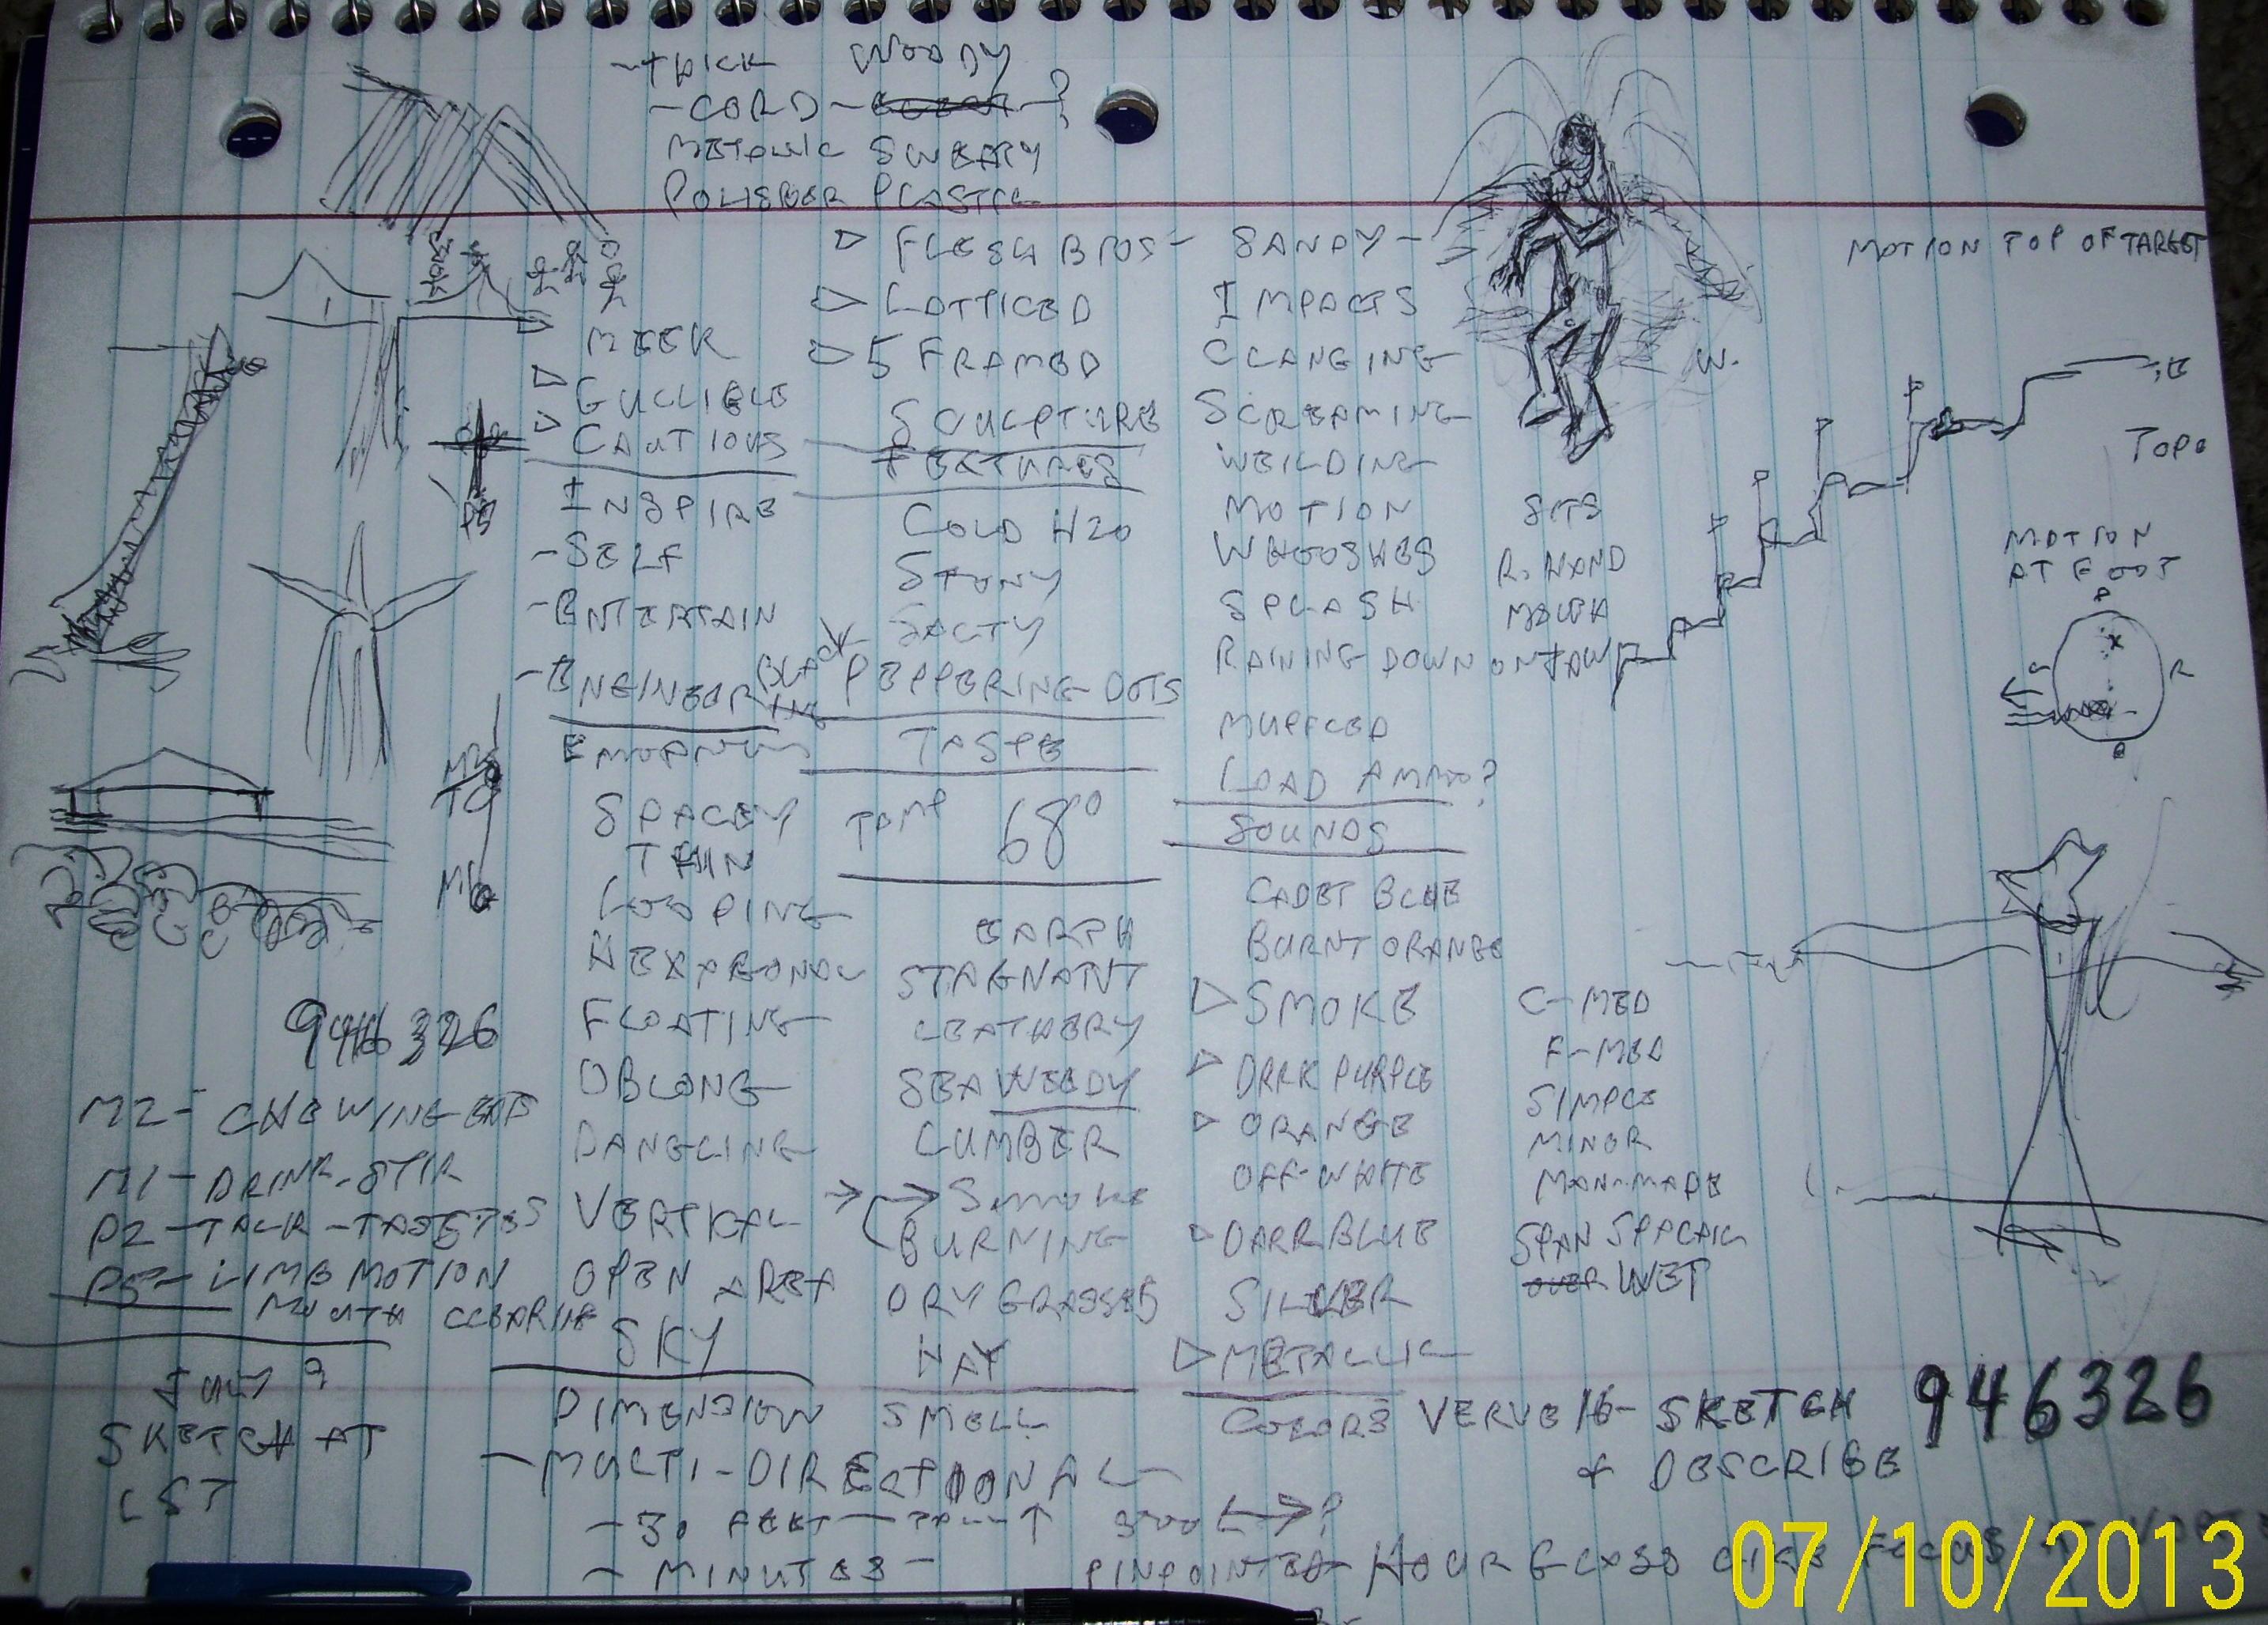 WOODY
- CORD -
METALLIC SWEATY
PLASTIC
FLESH BIOS - SANDY -
LATTICED
5 FRAMED
SCULPTURE
TEXTURES
COLD H2O
STONY
SALTY
BLACK PEPPERING DOTS
TASTE
TEMP 68°
EARTH
STAGNATNT
LEATHERY
SEAWEEDY
LUMBER
SMOKE
BURNING
DRY GRASSES
HAY
SMELL
MEEK
GULLIBLE
CAUTIOUS
INSPIRE
- SELF
- ENTERTAIN
- ENGINEERING
SPACEY
THIN
LOOPING
HEXAGONAL
FLOATING
OBLONG
DANGLING
VERTICAL
OPEN AREA
SKY
DIMENSION
- MULTI-DIRECTIONAL
- 30 FEET - TALL ↑
- MINUTES -
IMPACTS
CLANGING
SCREAMING
WEILDING
MOTION
WHOOSHES
SPLASH
RAINING DOWN ONTAW
MUFFLED
LOAD AMMO?
SOUNDS
CADET BLUE
BURNT ORANGE
SMOKE
DARK PURPLE
ORANGE
OFF-WHITE
DARK BLUE
SILVER
METALLIC
COLORS
MOTION TOP OF TARGET
W.
TOPO
SITS
R. HAND
MOUTH
MOTION
AT FOOT
R
C-MED
F-MED
SIMPLE
MINOR
MAN-MADE
WET
946326
M2 - CHEWING EATS
M1 - DRINK-STIR
P2 - TALK - TASTES
P5 - LIMB MOTION
MOUTH
SKETCH AT
LST
P5
M2
M1
VERVE 16 - SKETCH 946326
+ DESCRIBE
HOUR GLASS
07/10/2013